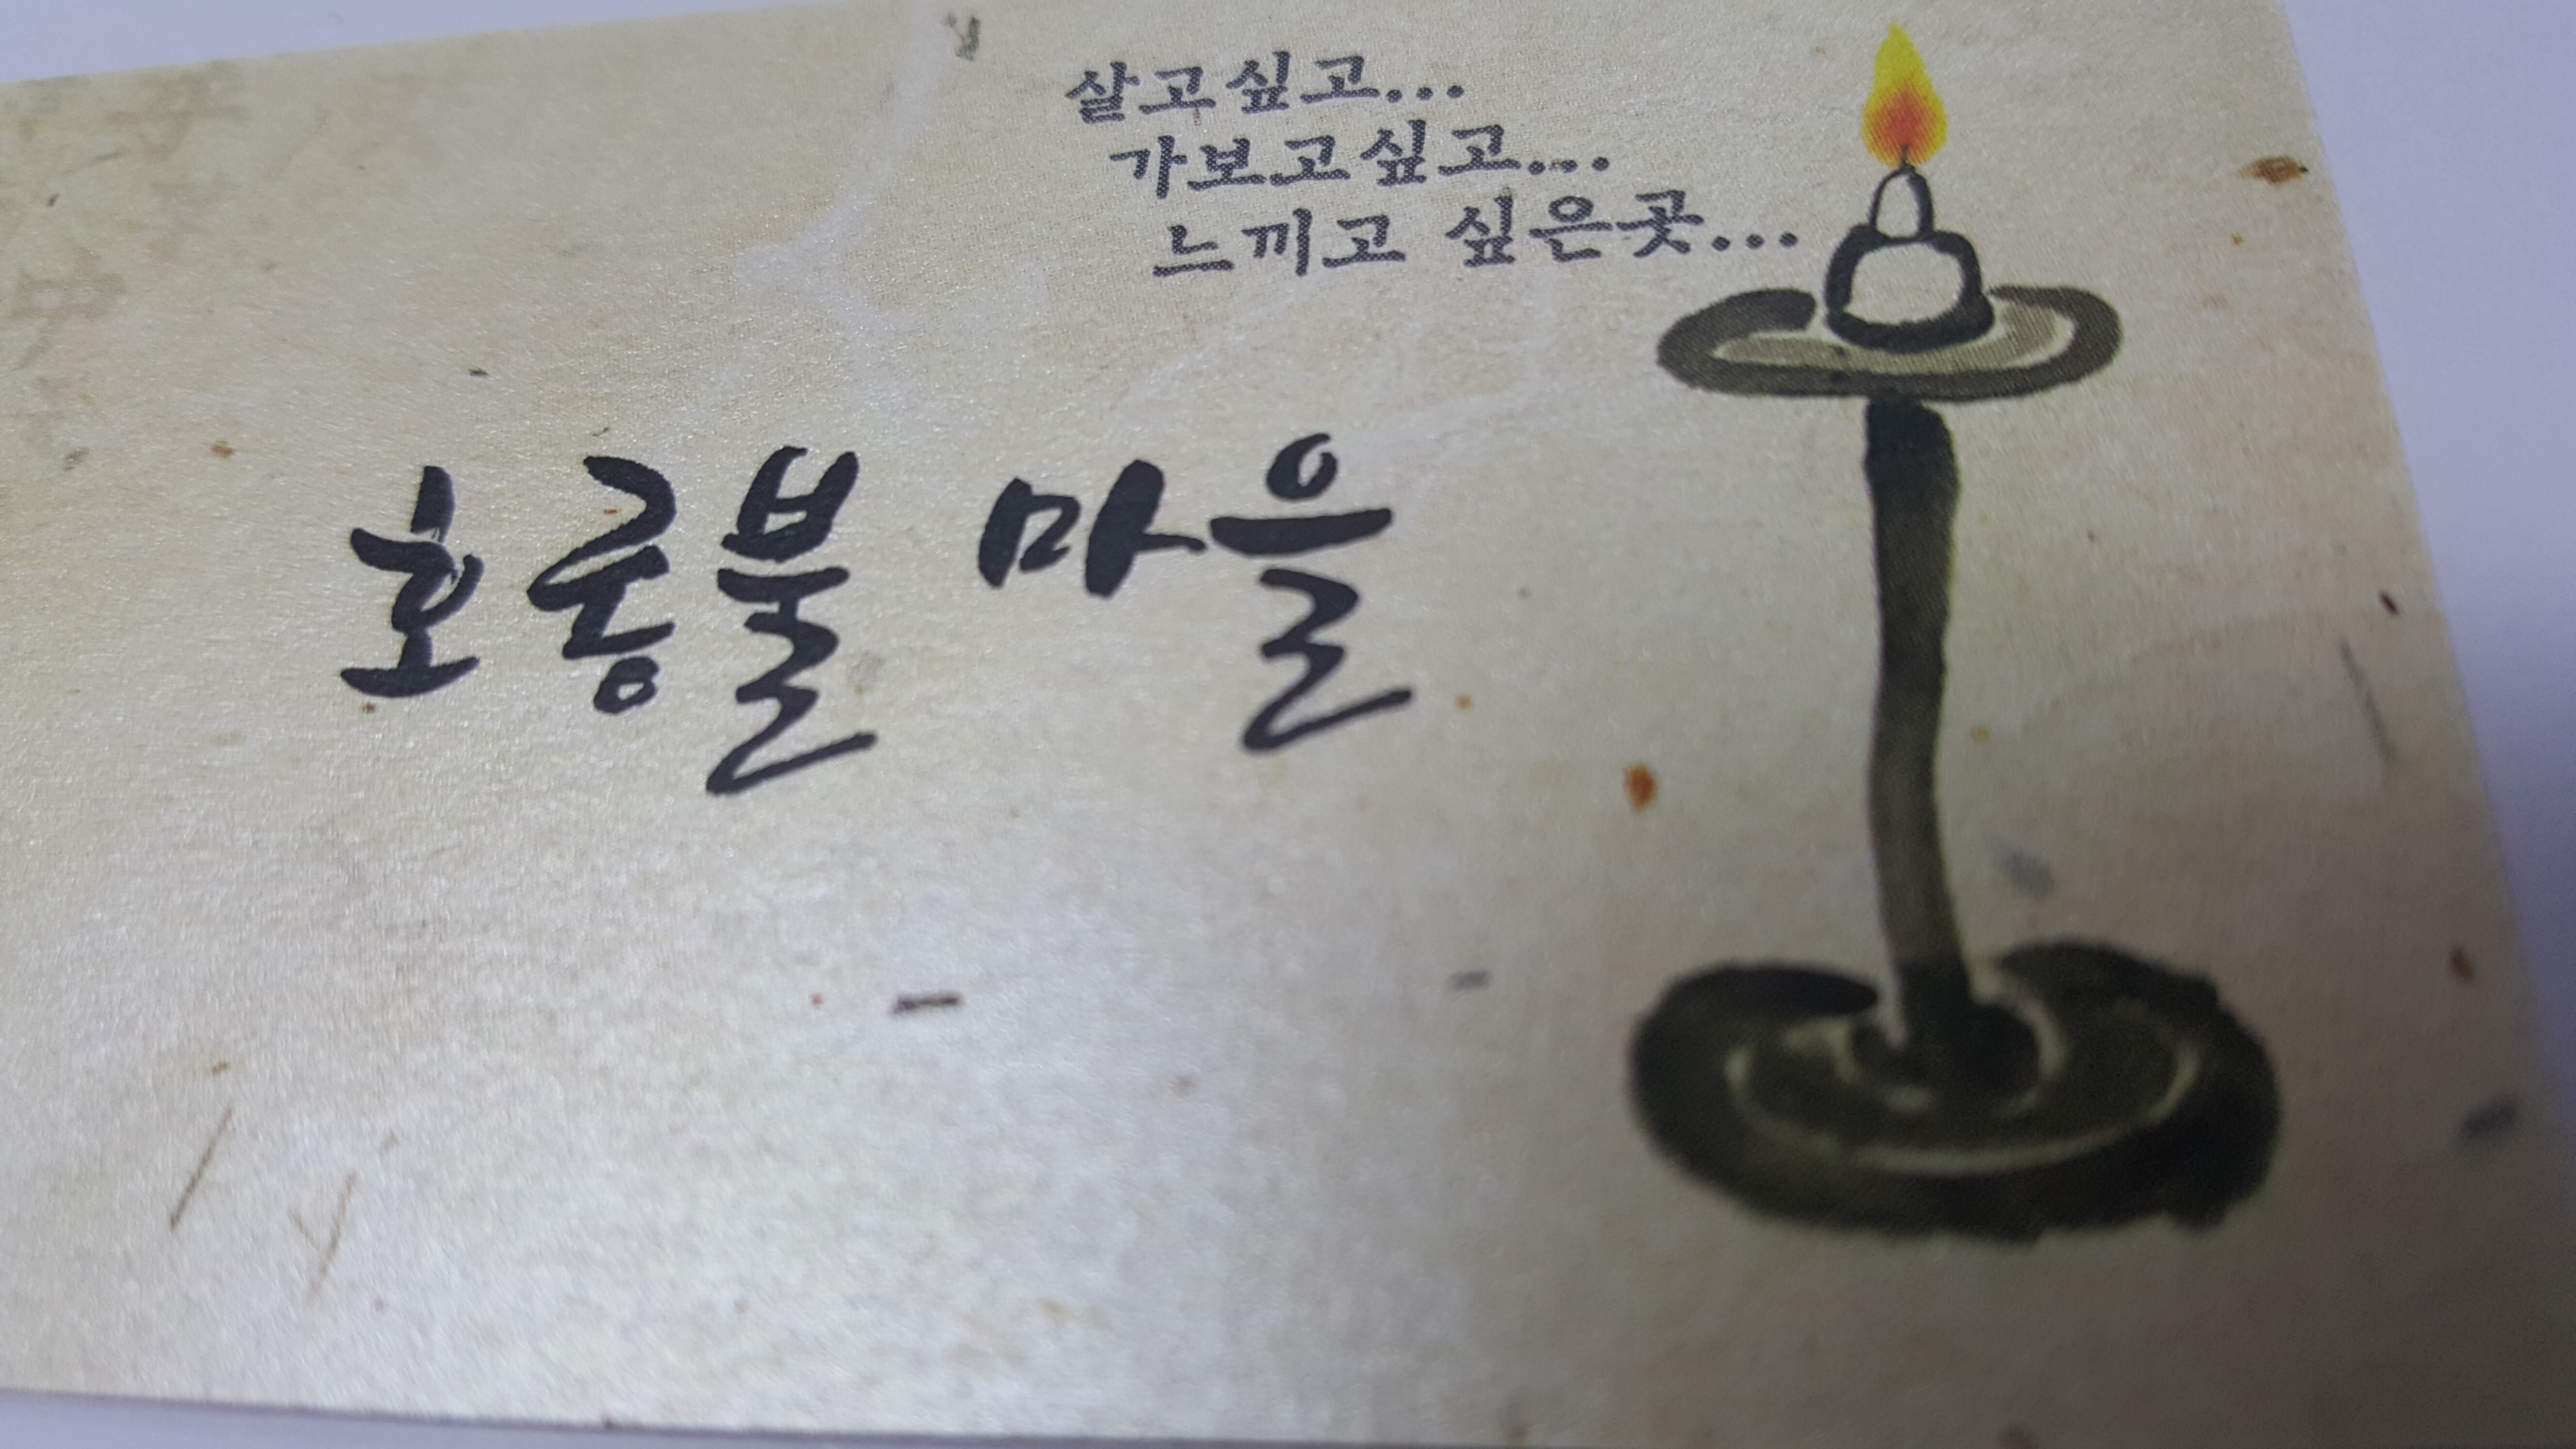 살고싶고...
가보고싶고...
느끼고 싶은곳...
호롱불 마을